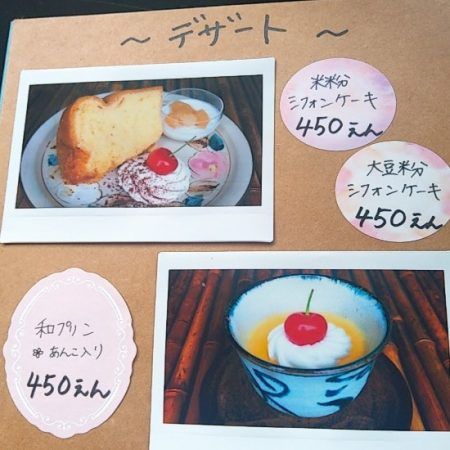 ～ デザート ～
米粉
シフォンケーキ
450えん
大豆粉
シフォンケーキ
450えん
和プリン
※あんこ入り
450えん